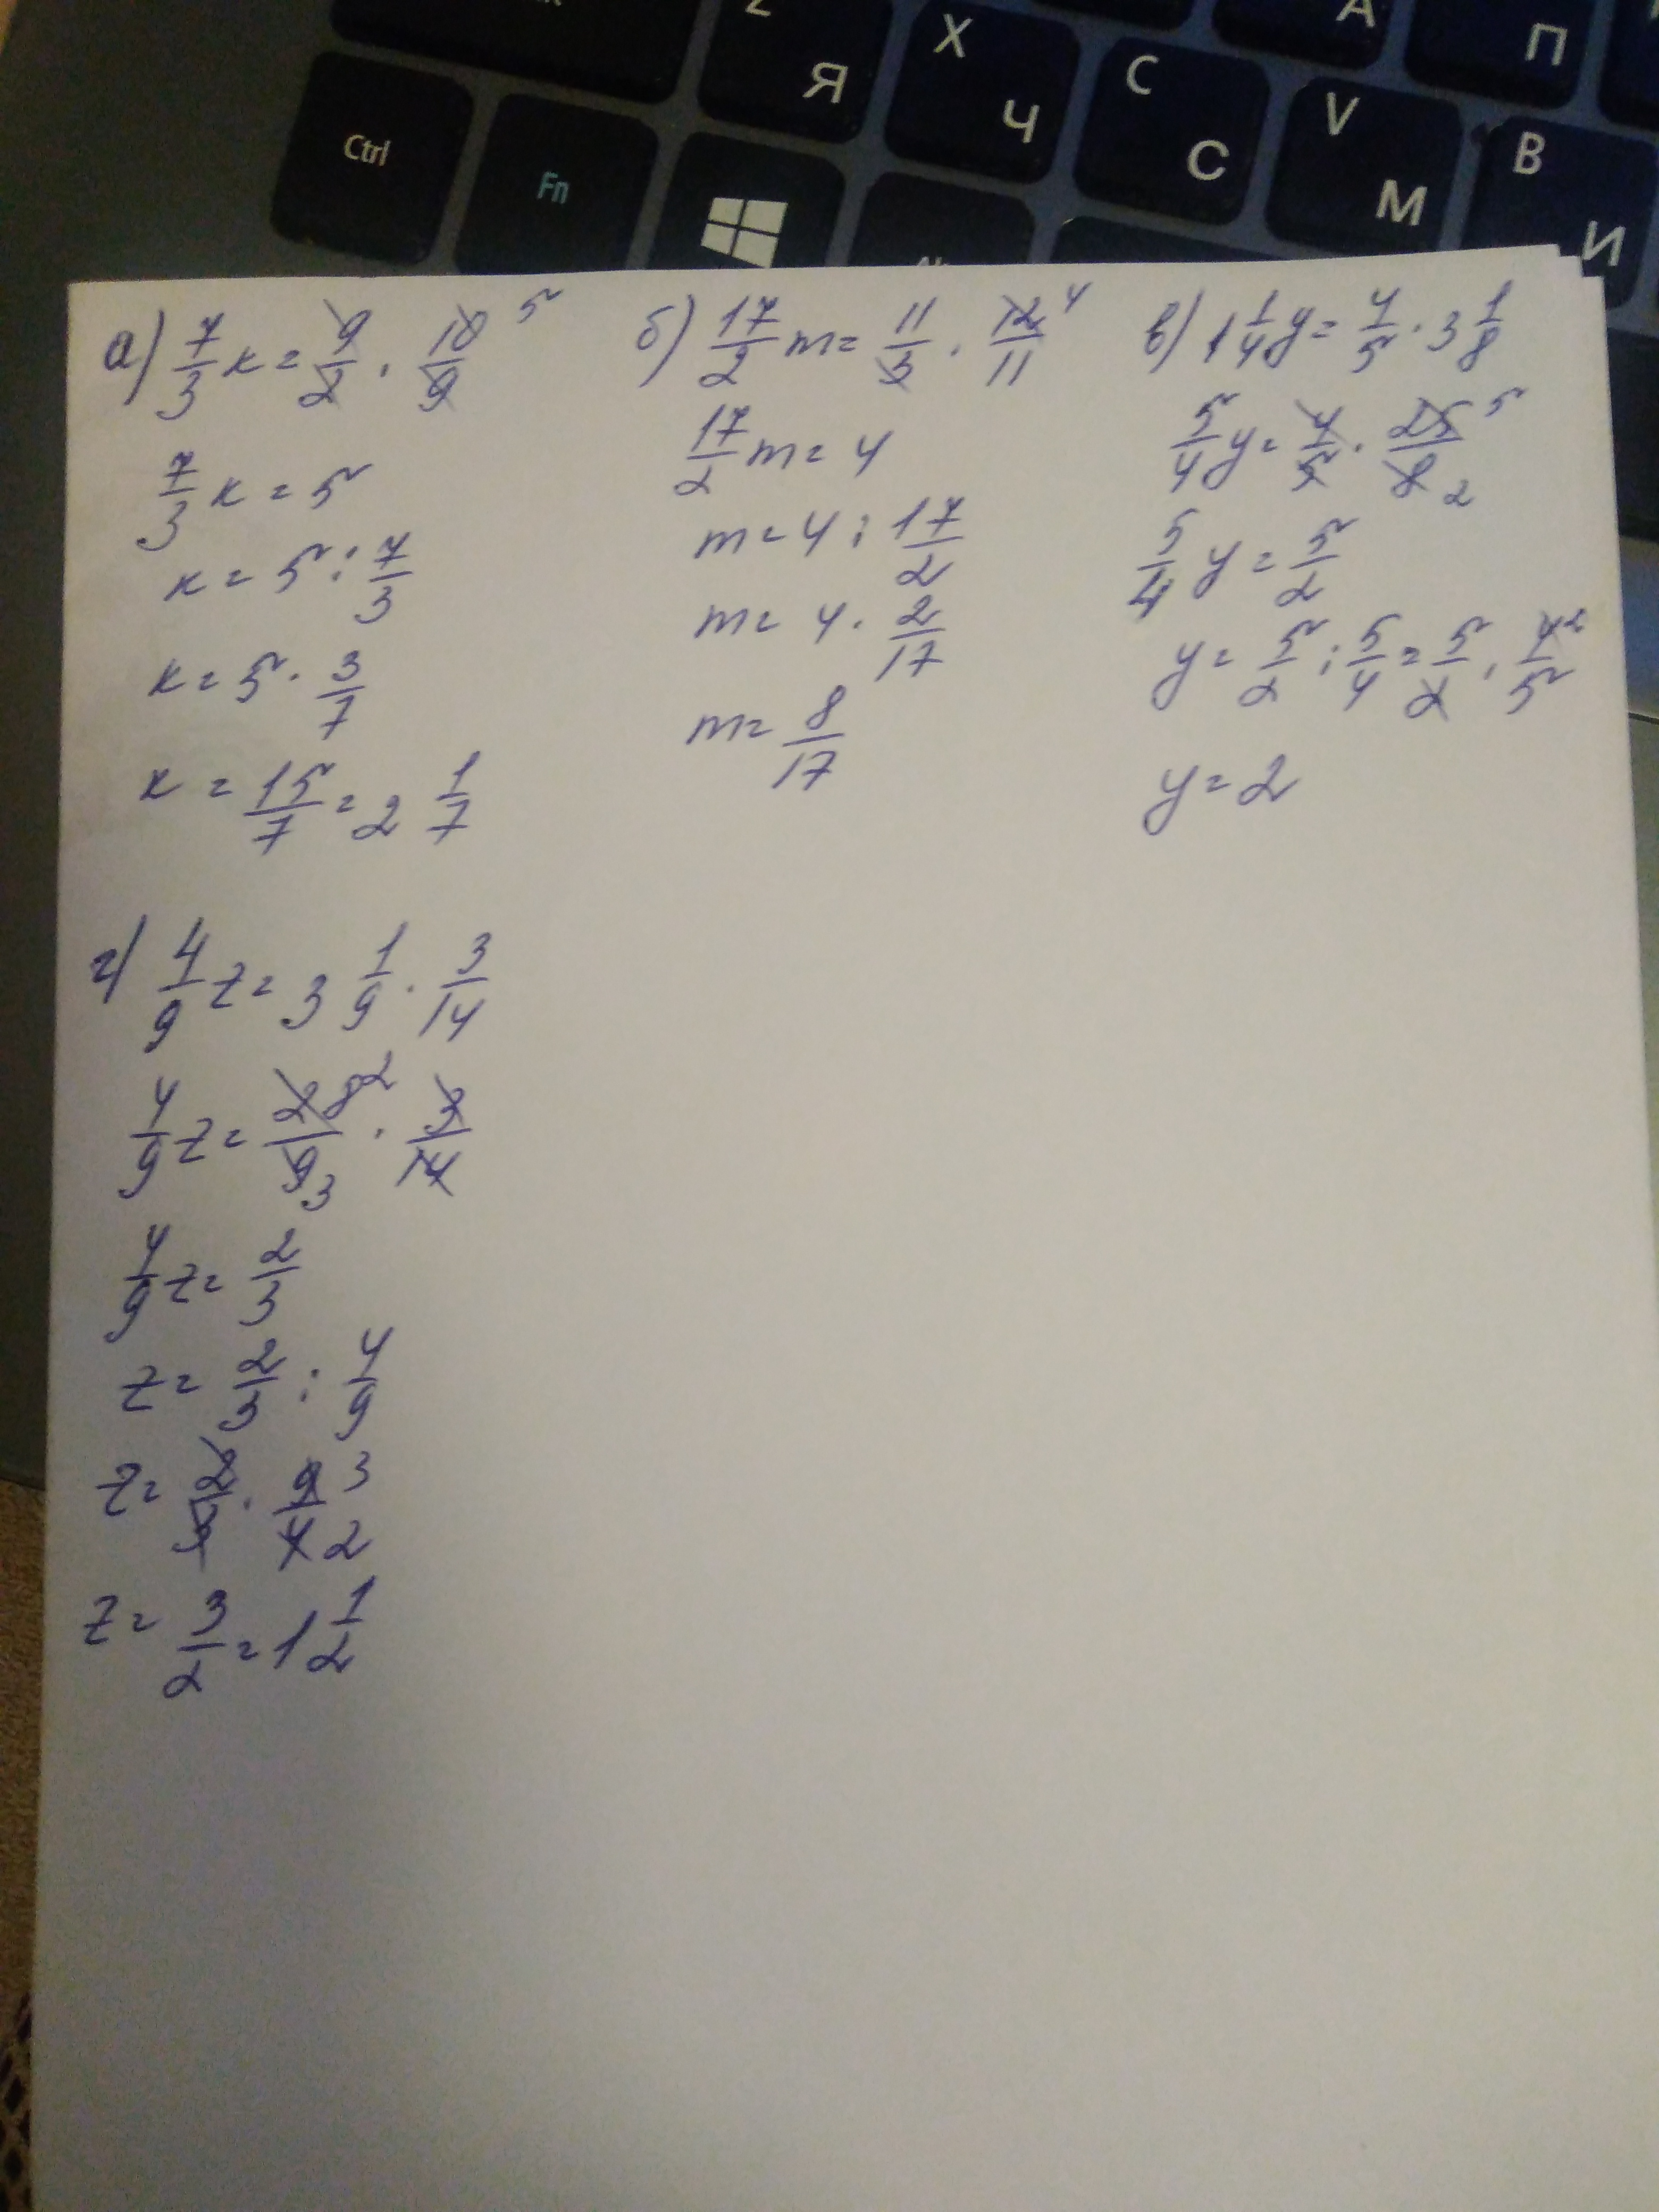 Z
Я
X
Ч
C
С
А
V
М
П
B
И
Ctrl
Fn
а) 7/3 x = 9/2 · 10/9 5
7/3 x = 5
x = 5 : 7/3
x = 5 · 3/7
x = 15/7 = 2 1/7
б) 17/2 m = 11/3 · 12/11 4
17/2 m = 4
m = 4 : 17/2
m = 4 · 2/17
m = 8/17
в) 1 1/4 y = 4/5 · 3 1/8
5/4 y = 4/5 · 25/8 5 2
5/4 y = 5/2
y = 5/2 : 5/4 = 5/2 · 4/5 2
y = 2
г) 4/9 z = 3 1/9 · 3/14
4/9 z = 28/9 2 3 · 3/14
4/9 z = 2/3
z = 2/3 : 4/9
z = 2/3 · 9/4 3 2
z = 3/2 = 1 1/2